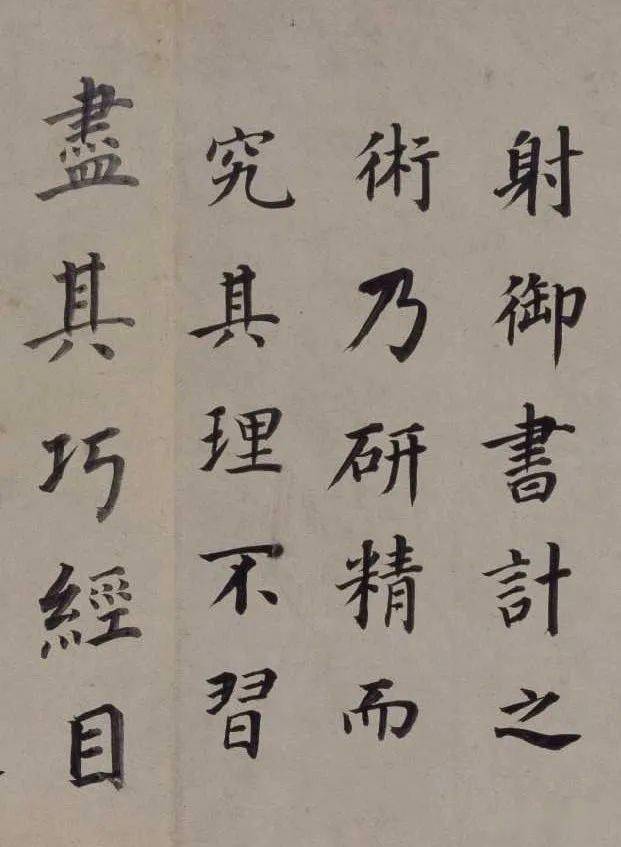 射御書計之
術乃研精而
究其理不習
盡其巧經目